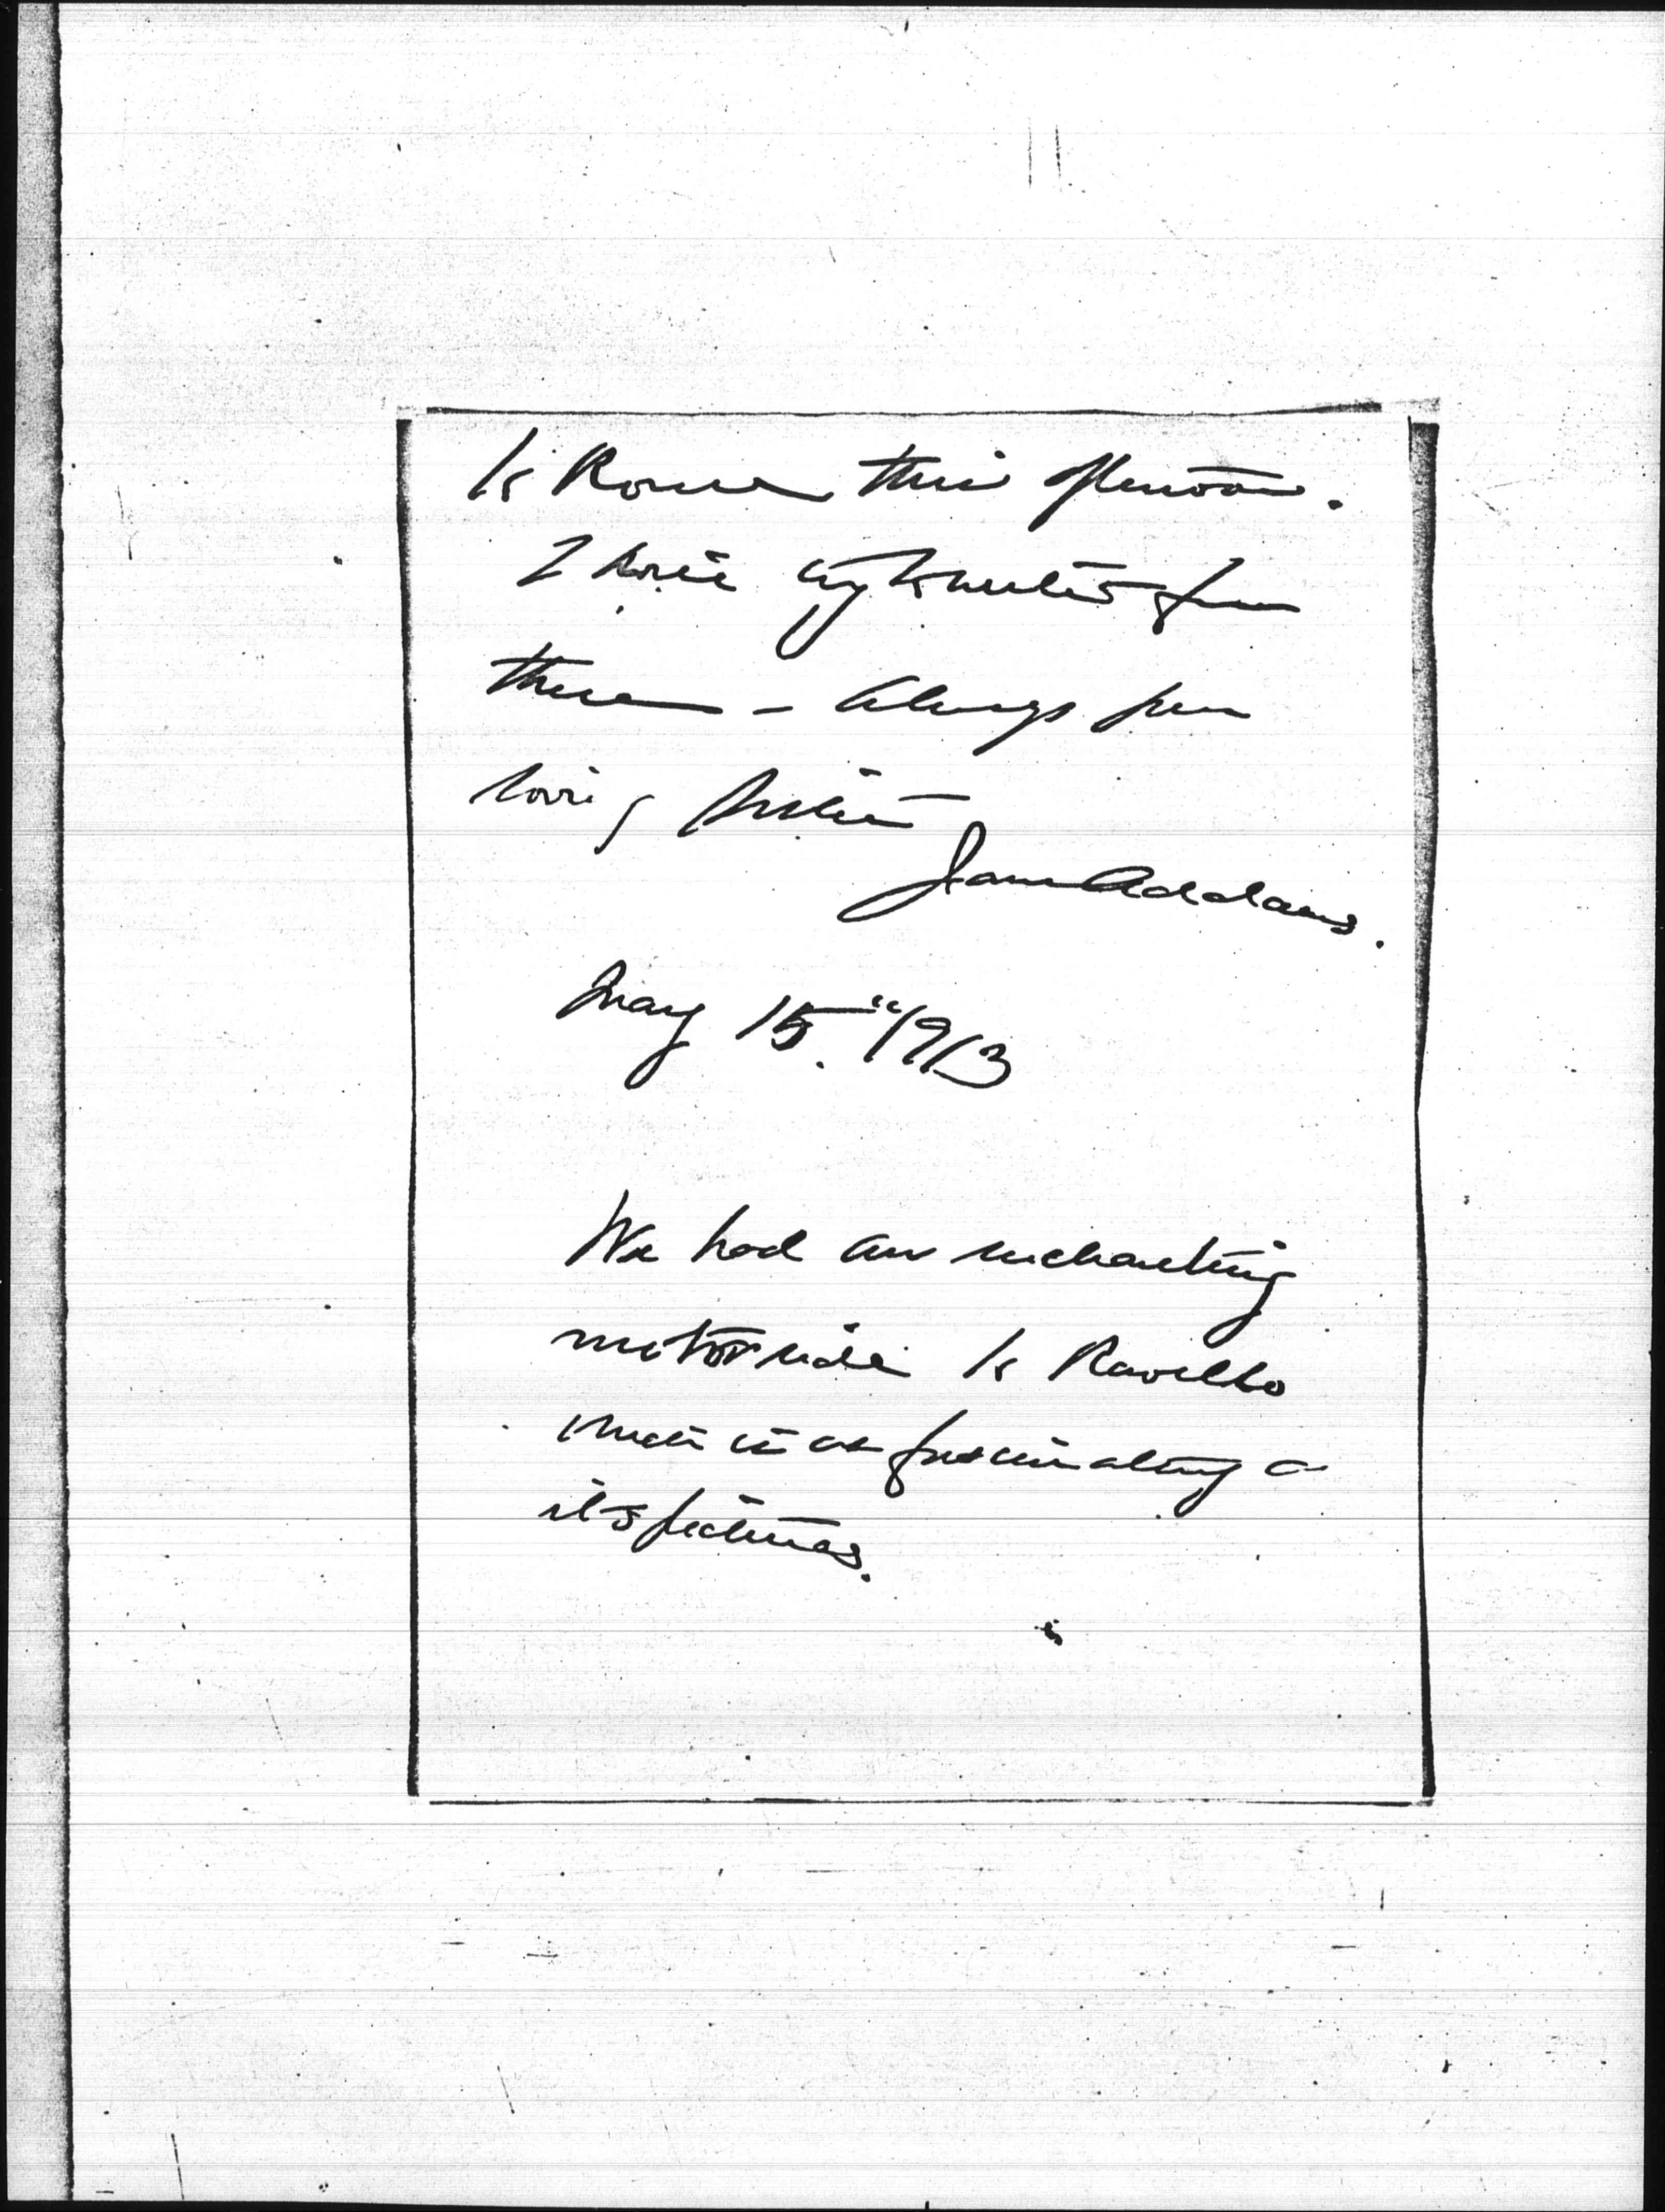 to Rome this afternoon.
I will try to write from
there – Always your
loving sister
Jane Addams.
May 15" 1913
We had an enchanting
motor ride to Ravello
which is as fascinating as
its pictures.